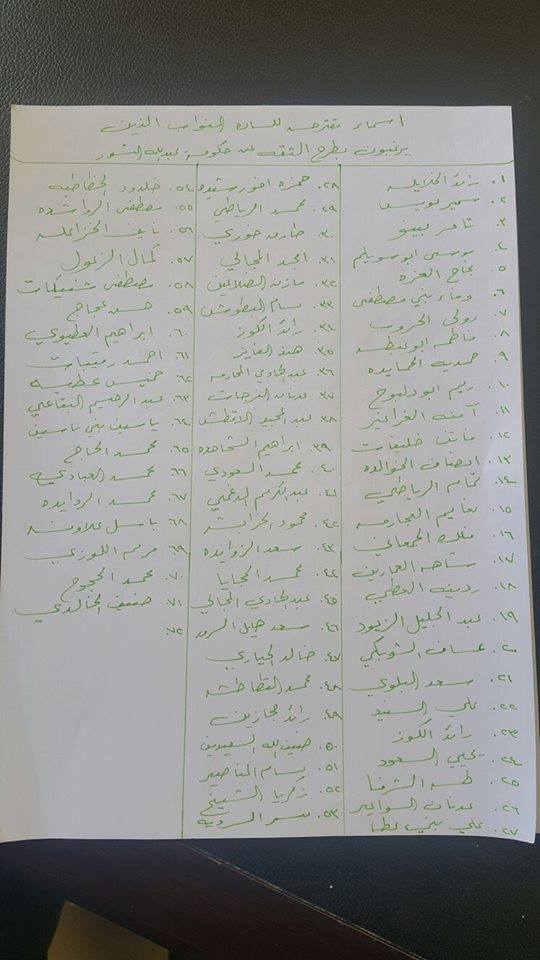 اسماء مقترحه للساده النواب الذين
يرغبون بطرح الثقه عن حكومة عبدالله النسور
١. رائد الخلايله
٢. سمير عويس
٣. تامر بينو
٤. موسى ابو سويلم
٥. نجاح العزه
٦. وفاء بني مصطفى
٧. رولى الحروب
٨. فاطمه ابو عبطه
٩. حمديه الحمايده
١٠. ريم ابو دلبوح
١١. آمنه الغراغير
١٢. فاتن خليفات
١٣. انصاف الخوالده
١٤. تمام الرياطي
١٥. نعايم العجارمه
١٦. فلك الجمعاني
١٧. شاهه العمارين
١٨. ردينه العطي
١٩. عبد الجليل الزيود
٢٠. عساف الشوبكي
٢١. سعد البلوي
٢٢. علي السنيد
٢٣. رائد الكوز
٢٤. يحيى السعود
٢٥. طه الشرفا
٢٦. عدنان السواعير
٢٧. علي بني عطا
٢٨. حمزه اخو رشيده
٢٩. محمد الرياطي
٣٠. طارق خوري
٣١. امجد المجالي
٣٢. مازن الضلاعين
٣٣. بسام البطوش
٣٤. رائد الكوز
٣٥. هند الفايز
٣٦. عبد الهادي المحارمه
٣٧. عدنان الفرجات
٣٨. عبد المجيد الاقطش
٣٩. ابراهيم الشحاحده
٤٠. محمد السعودي
٤١. عبد الكريم الدغمي
٤٢. محمود الخرابشه
٤٣. سعد الزوايده
٤٤. محمد الحجايا
٤٥. عبد الهادي المجالي
٤٦. سعد هايل السرور
٤٧. خالد الحياري
٤٨. محمد القطاطشه
٤٩. رائد حجازين
٥٠. ضيف الله السعيديين
٥١. بسام المناصير
٥٢. زكريا الشيخ
٥٣. ميسر السرديه
٥٤. خلدود الخطاطبه
٥٥. مصطفى الرواشده
٥٦. نايف الخزاعله
٥٧. كمال الزغول
٥٨. مصطفى شنيكات
٥٩. حسن عجاج
٦٠. ابراهيم العطيوي
٦١. احمد رقيبات
٦٢. خميس عطيه
٦٣. عبد الرحيم البقاعي
٦٤. ياسين بني ياسين
٦٥. محمد الحاج
٦٦. محمد العبادي
٦٧. محمد الردايده
٦٨. باسل علاونه
٦٩. مريم اللوزي
٧٠. محمد الحجوج
٧١. ضيف الخالدي
٧٢.